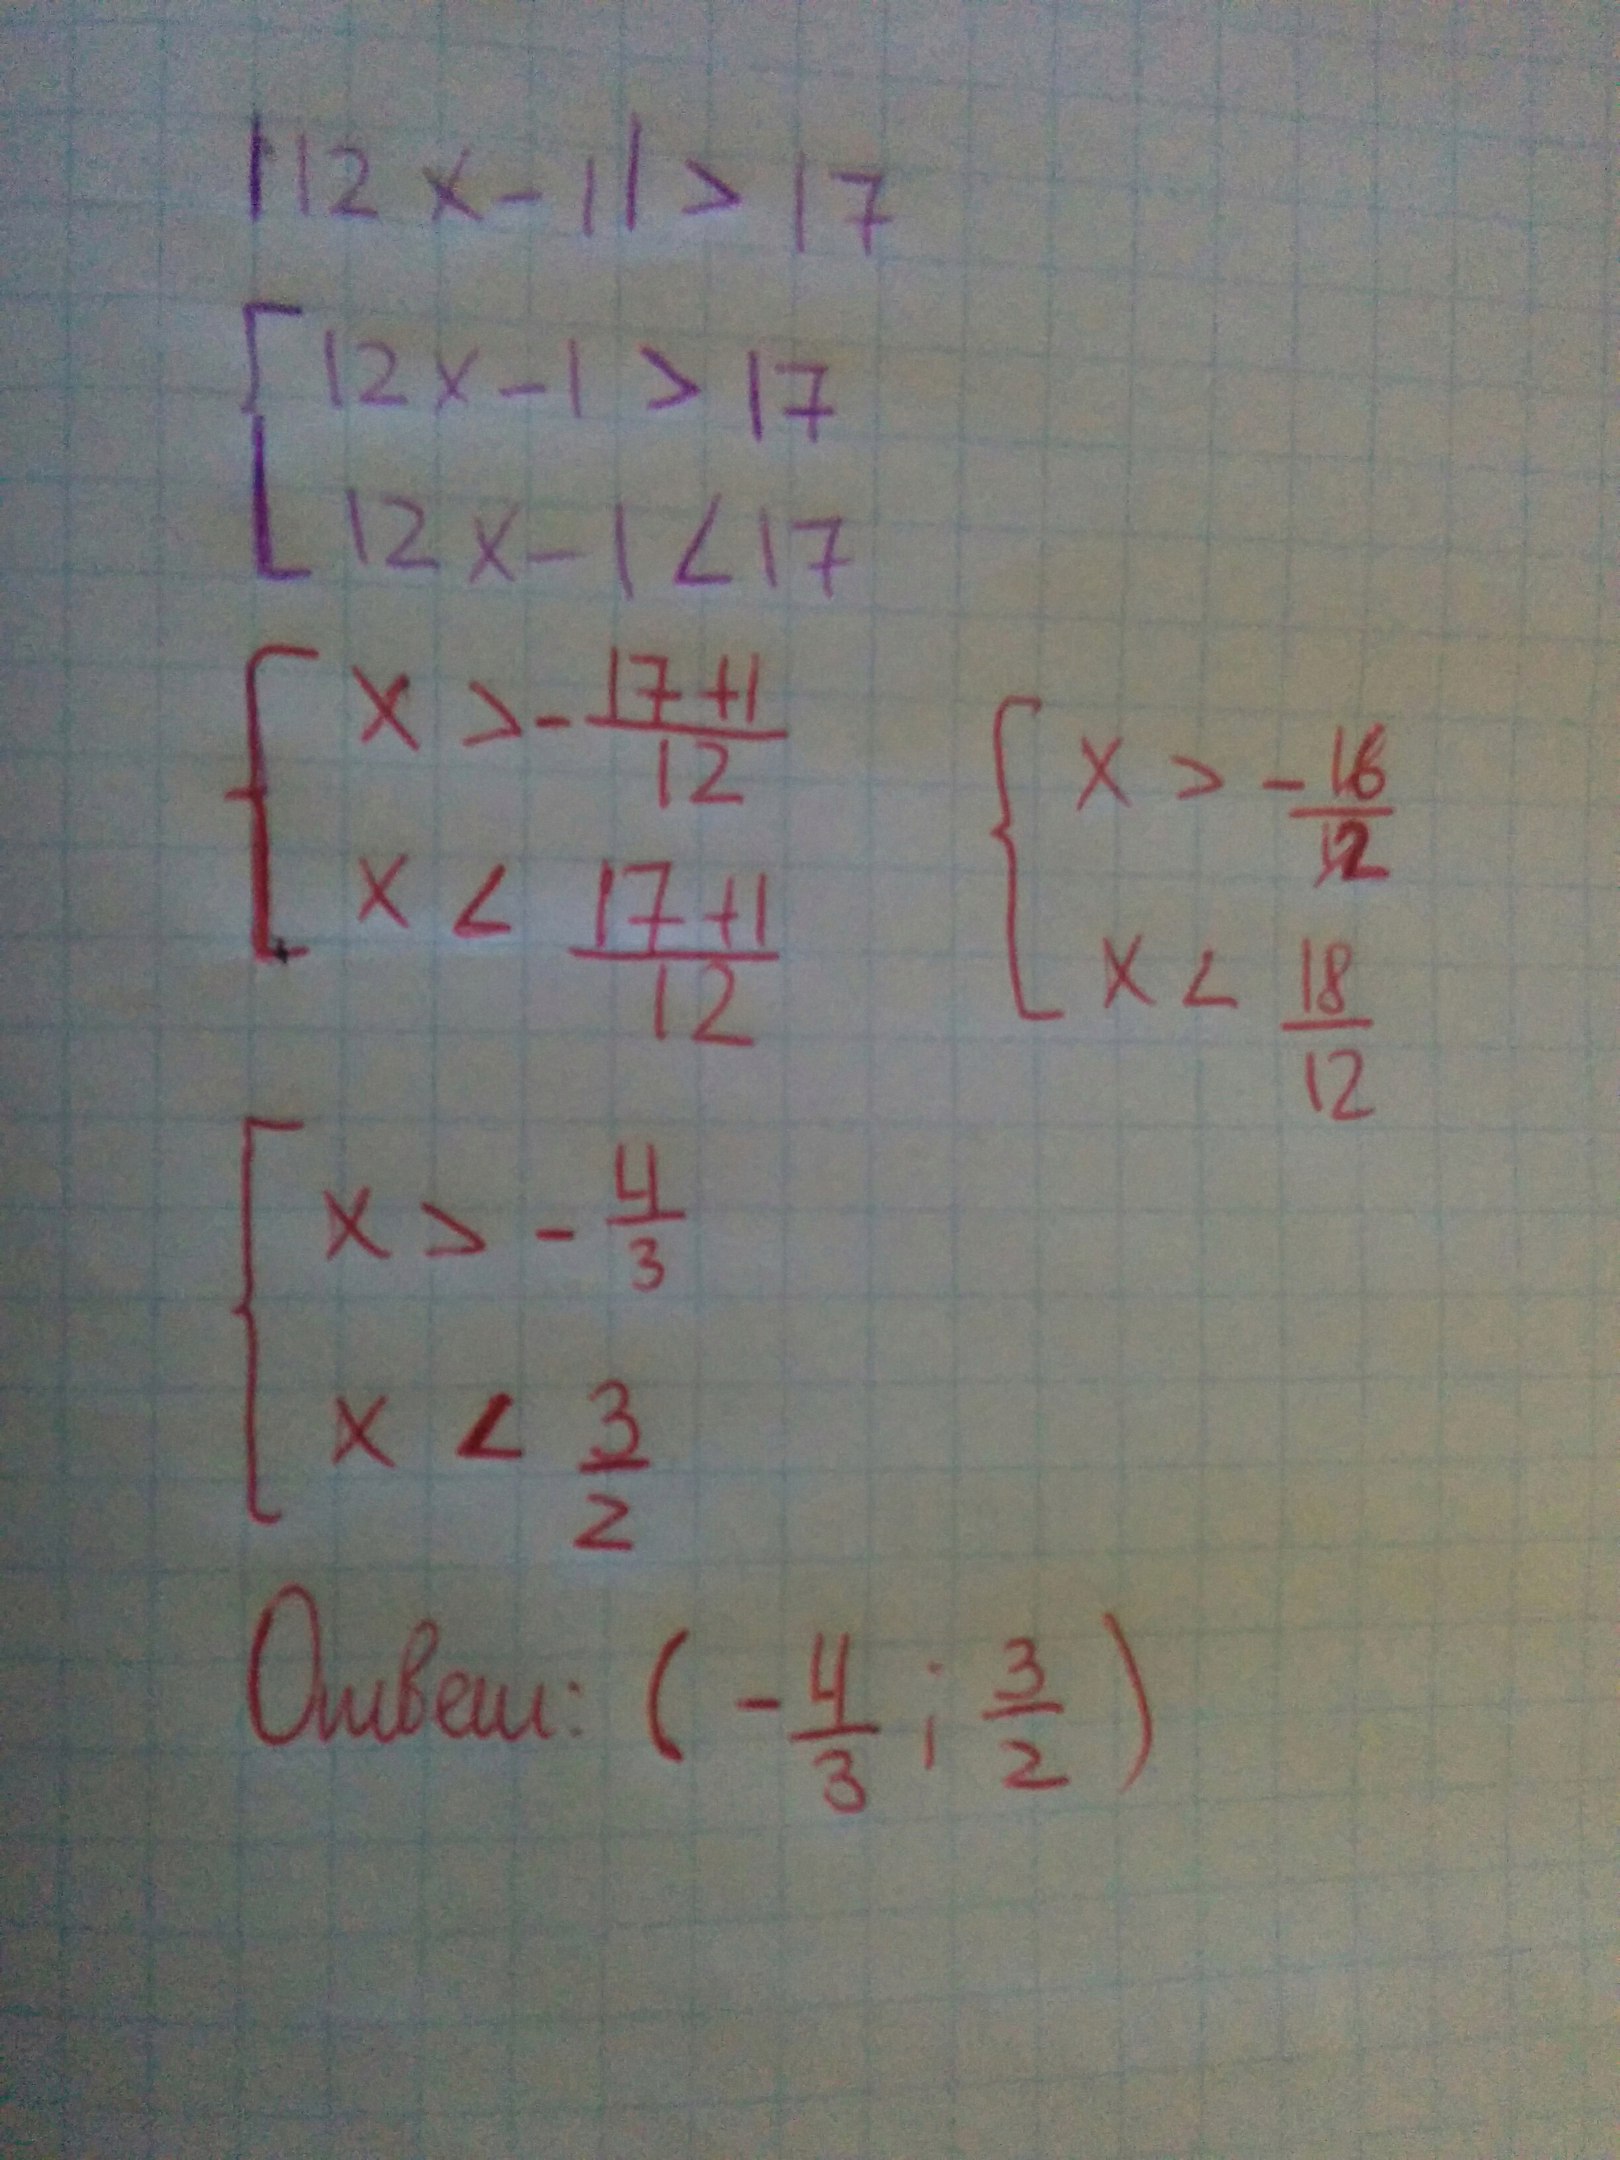 |12x-1|>17
[12x-1>17
12x-1<17
{x>-\frac{17+1}{12}
x<\frac{17+1}{12}
{x>\frac{-16}{12}
x<\frac{18}{12}
{x>-\frac{4}{3}
x<\frac{3}{2}
Ответ: (-\frac{4}{3};\frac{3}{2})